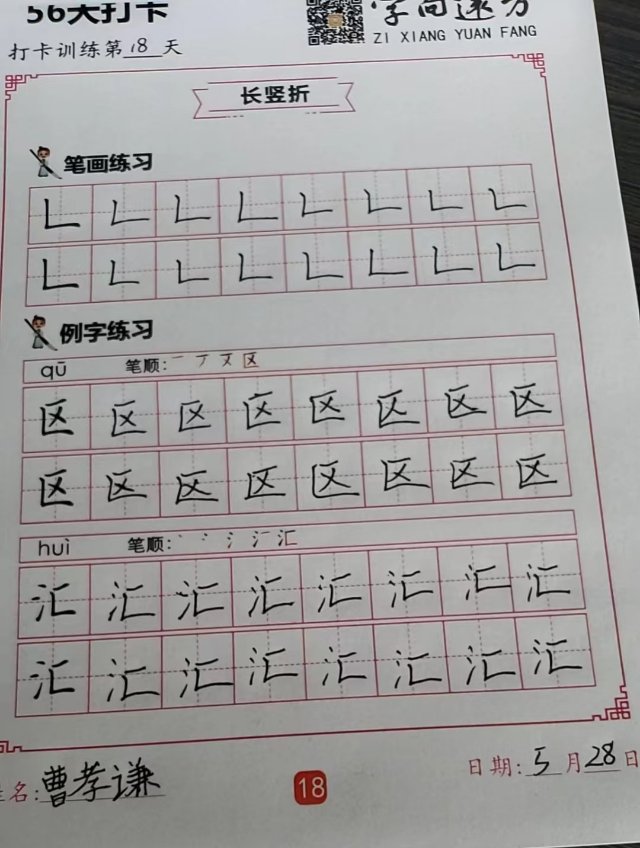 56天打卡
字向速方
ZI XIANG YUAN FANG
打卡训练第18天
长竖折
笔画练习
例字练习
qū 笔顺: 一 丆 又 区
区 区 区 区 区 区 区 区
区 区 区 区 区 区 区 区
huì 笔顺: 丶 冫 氵 汇 汇
汇 汇 汇 汇 汇 汇 汇 汇
汇 汇 汇 汇 汇 汇 汇 汇
姓名: 曹孝谦
18
日期: 5月28日